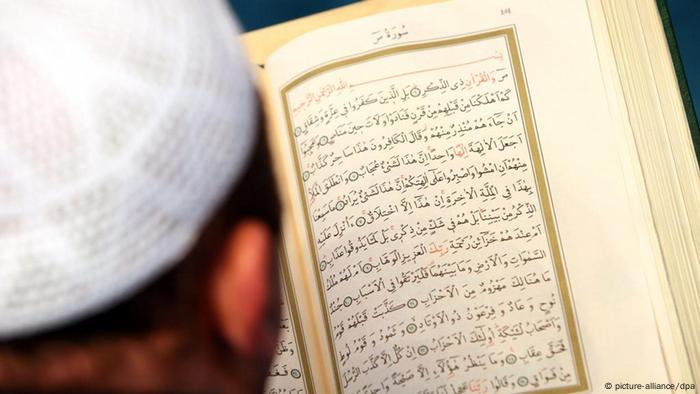 سُورَةُ صٓ
بِسْمِ اللّٰهِ الرَّحْمٰنِ الرَّحِيمِ
صٓ وَالْقُرْاٰنِ ذِي الذِّكْرِ بَلِ الَّذِينَ كَفَرُوا فِي عِزَّةٍ وَشِقَاقٍ
كَمْ اَهْلَكْنَا مِنْ قَبْلِهِمْ مِنْ قَرْنٍ فَنَادَوْا وَلَاتَ حِينَ مَنَاصٍ وَعَجِبُوا
اَنْ جَاءَهُمْ مُنْذِرٌ مِنْهُمْ وَقَالَ الْكَافِرُونَ هٰذَا سَاحِرٌ كَذَّابٌ
اَجَعَلَ الْاٰلِهَةَ اِلٰهًا وَاحِدًا اِنَّ هٰذَا لَشَيْءٌ عُجَابٌ وَانْطَلَقَ الْمَلَاُ
مِنْهُمْ اَنِ امْشُوا وَاصْبِرُوا عَلٰى اٰلِهَتِكُمْ اِنَّ هٰذَا لَشَيْءٌ يُرَادُ مَا سَمِعْنَا
بِهٰذَا فِي الْمِلَّةِ الْاٰخِرَةِ اِنْ هٰذَا اِلَّا اخْتِلَاقٌ ءَاُنْزِلَ عَلَيْهِ
الذِّكْرُ مِنْ بَيْنِنَا بَلْ هُمْ فِي شَكٍّ مِنْ ذِكْرِي بَلْ لَمَّا يَذُوقُوا عَذَابِ
اَمْ عِنْدَهُمْ خَزَائِنُ رَحْمَةِ رَبِّكَ الْعَزِيزِ الْوَهَّابِ اَمْ لَهُمْ مُلْكُ
السَّمٰوَاتِ وَالْاَرْضِ وَمَا بَيْنَهُمَا فَلْيَرْتَقُوا فِي الْاَسْبَابِ جُنْدٌ
مَا هُنَالِكَ مَهْزُومٌ مِنَ الْاَحْزَابِ كَذَّبَتْ قَبْلَهُمْ قَوْمُ
نُوحٍ وَعَادٌ وَفِرْعَوْنُ ذُو الْاَوْتَادِ وَثَمُودُ وَقَوْمُ لُوطٍ
وَاَصْحَابُ لْـَٔيْكَةِ اُولٰئِكَ الْاَحْزَابُ اِنْ كُلٌّ اِلَّا كَذَّبَ الرُّسُلَ
فَحَقَّ عِقَابِ وَمَا يَنْظُرُ هٰؤُلَاءِ اِلَّا صَيْحَةً وَاحِدَةً
مِنْ فَوَاقٍ وَقَالُوا رَبَّنَا عَجِّلْ
© picture-alliance/dpa